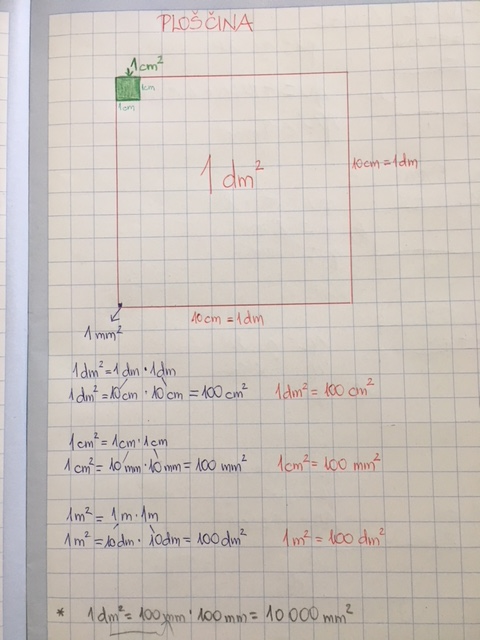 PLOŠČINA
1cm²
1cm
1cm
1 dm²
10cm = 1dm
10cm = 1dm
1 mm²
1dm² = 1dm · 1dm
1dm² = 10cm · 10cm = 100cm² 1dm² = 100 cm²
1cm² = 1cm · 1cm
1cm² = 10mm · 10mm = 100 mm² 1cm² = 100 mm²
1m² = 1m · 1m
1m² = 10dm · 10dm = 100dm² 1m² = 100 dm²
* 1dm² = 100mm · 100mm = 10 000 mm²